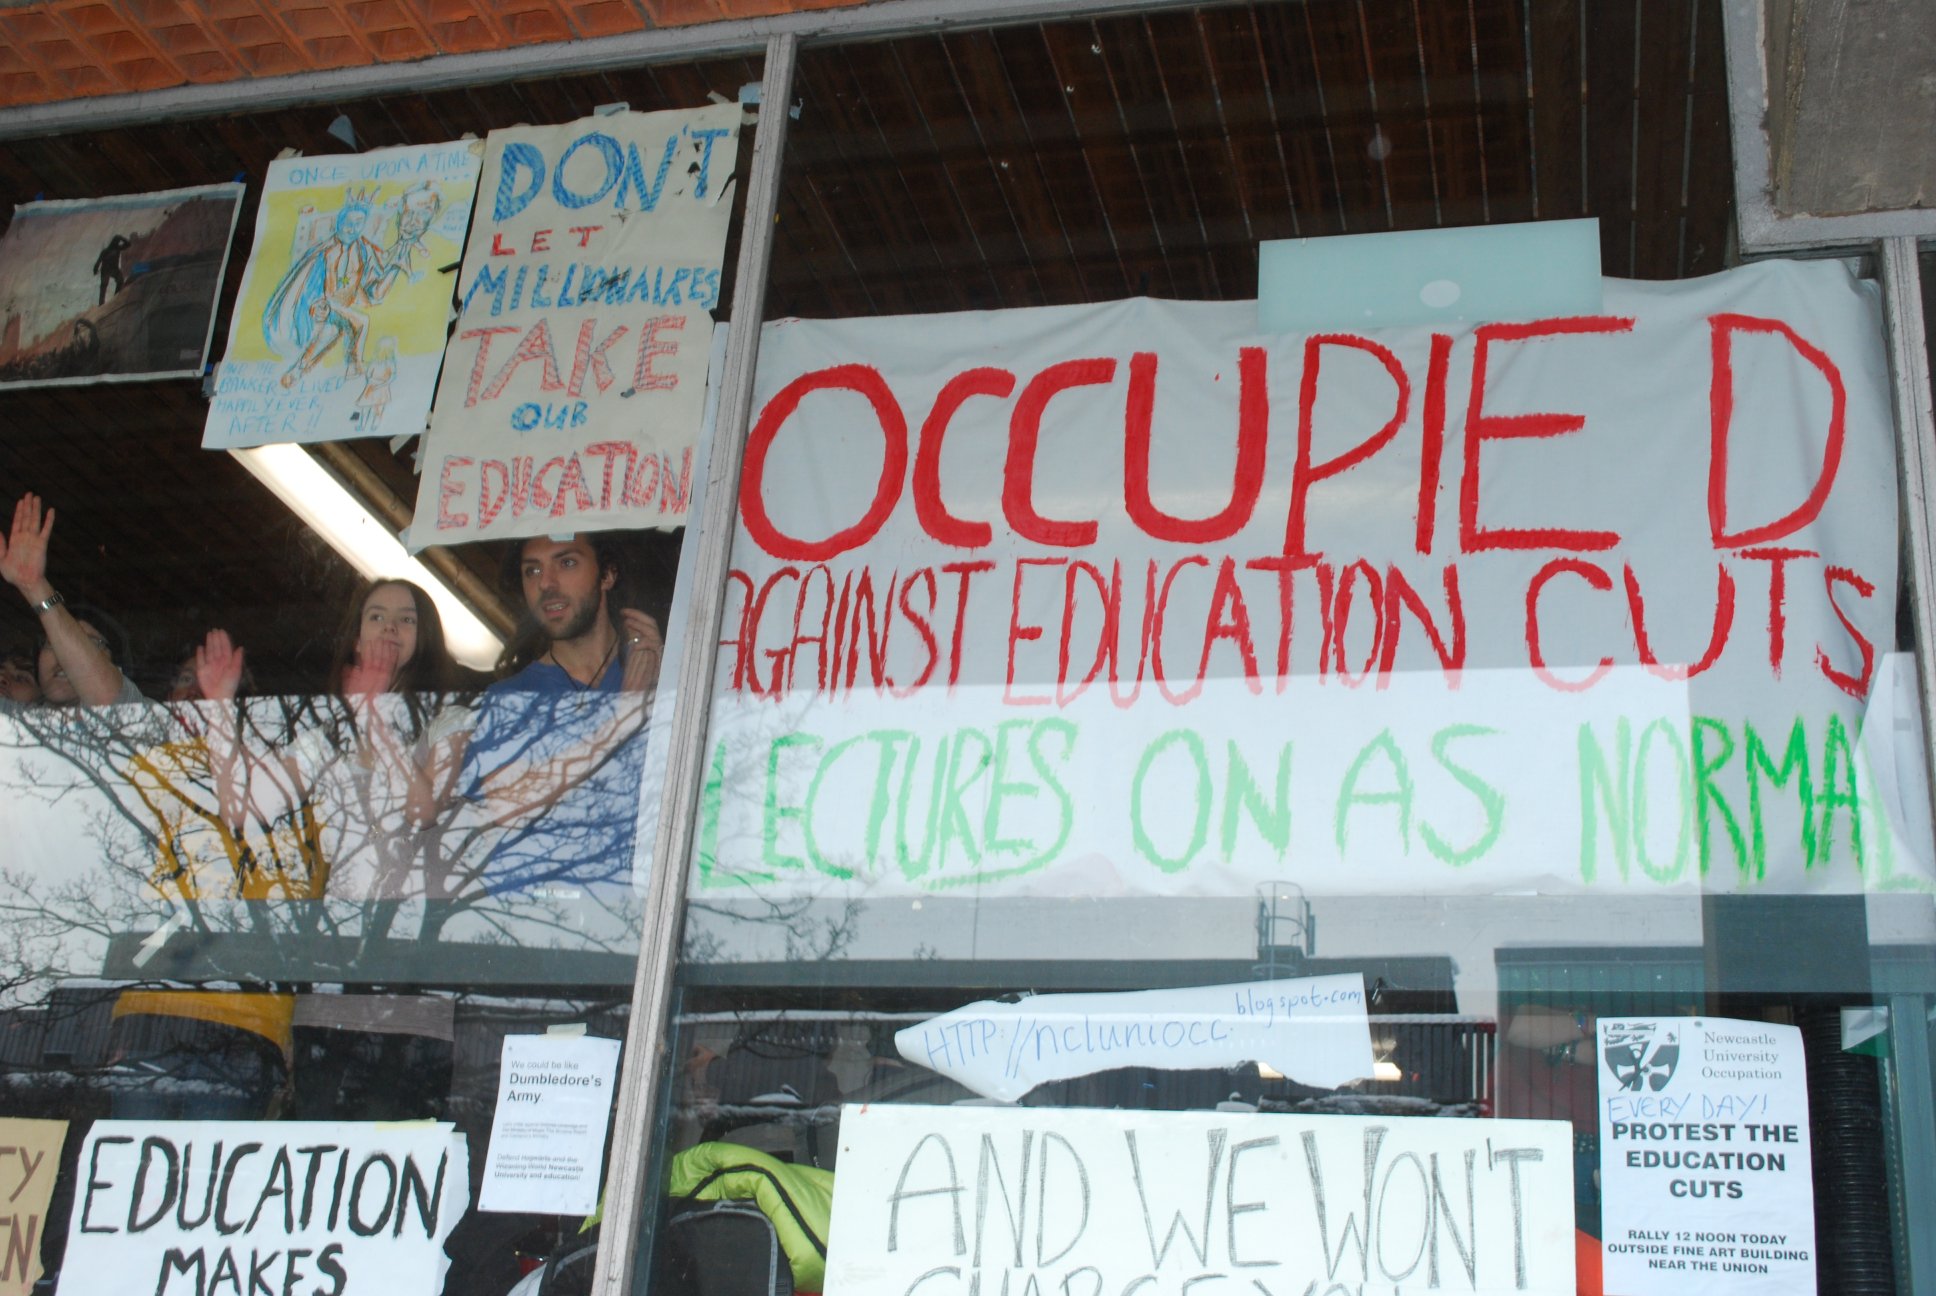 ONCE UPON A TIME
...
AND THE
BANKERS LIVED
HAPPILY EVER
AFTER!!
DON'T
LET
MILLIONAIRES
TAKE
OUR
EDUCATION
OCCUPIED
AGAINST EDUCATION CUTS
LECTURES ON AS NORMAL
HTTP://ncluniocc.
blogspot.com
We could be like
Dumbledore's
Army.
Defend Hogwarts and the
Wizarding World Newcastle
University and education!
Newcastle
University
Occupation
EVERY DAY!
PROTEST THE
EDUCATION
CUTS
RALLY 12 NOON TODAY
OUTSIDE FINE ART BUILDING
NEAR THE UNION
EDUCATION
MAKES
AND WE WON'T